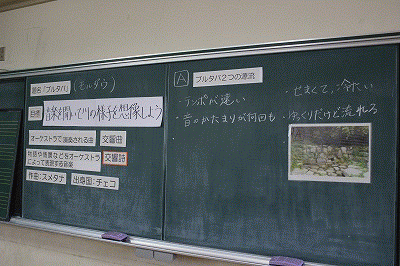 題名「ブルタバ」(モルダウ)
目標 音楽を聞いて川の様子を想像しよう
オーケストラで演奏される曲 交響曲
物語や情景などをオーケストラによって表現する音楽 交響詩
作曲:スメタナ 出身国:チェコ
A ブルタバ2つの源流
・テンポが速い
・音のかたまりが何回も
・せまくて、冷たい
・ゆっくりだけど流れる